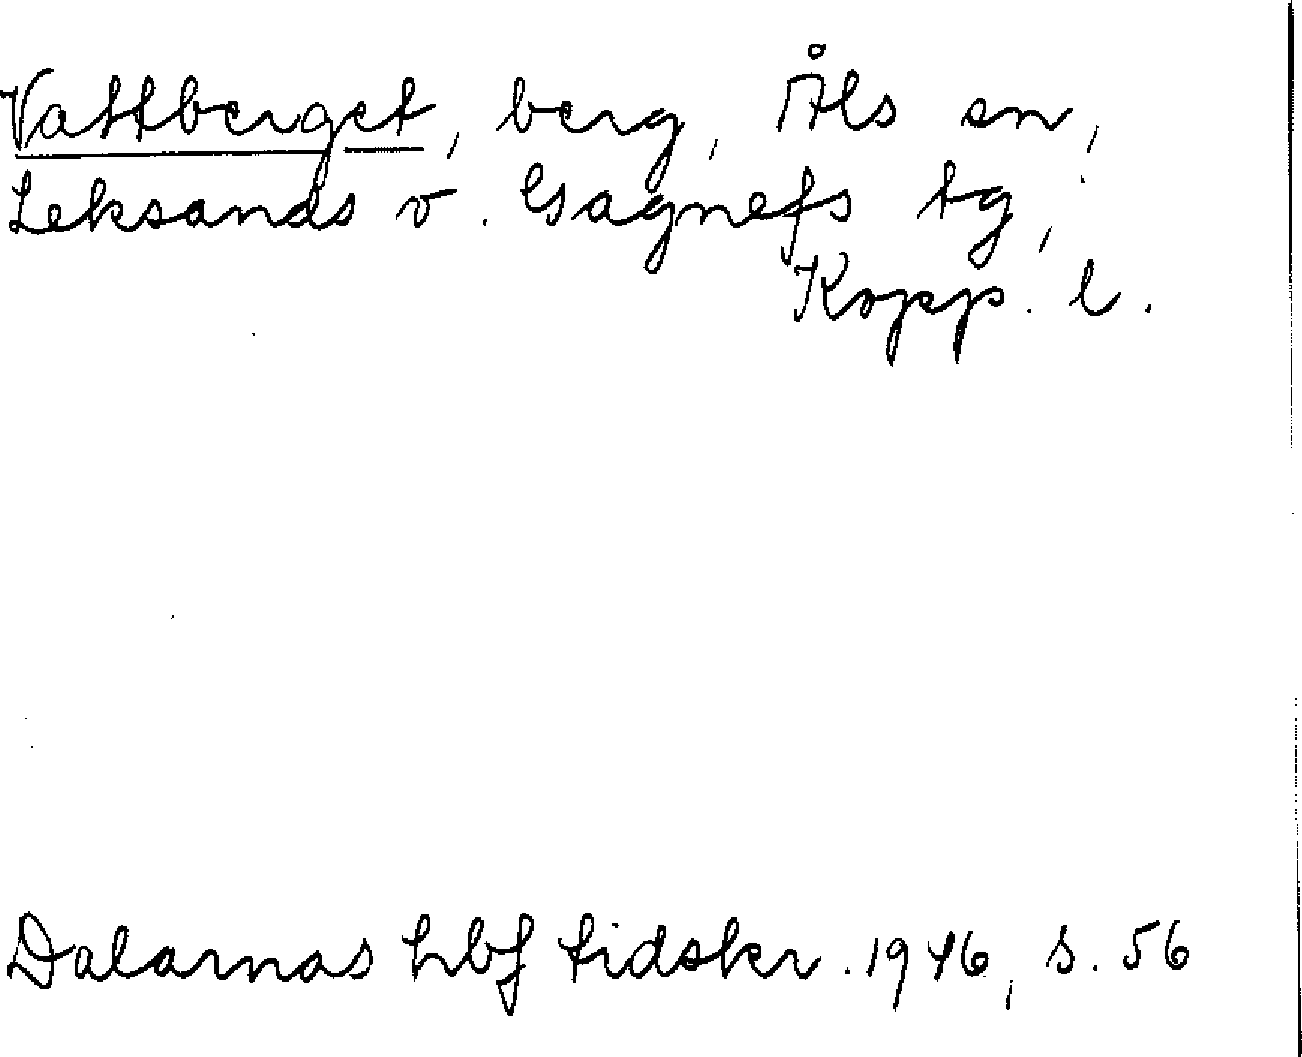 Vattberget, berg, Åls sn,
Leksands o. Gagnefs tg,
Kopp. l.
Dalarnas hbf tidskr. 1946, s. 56